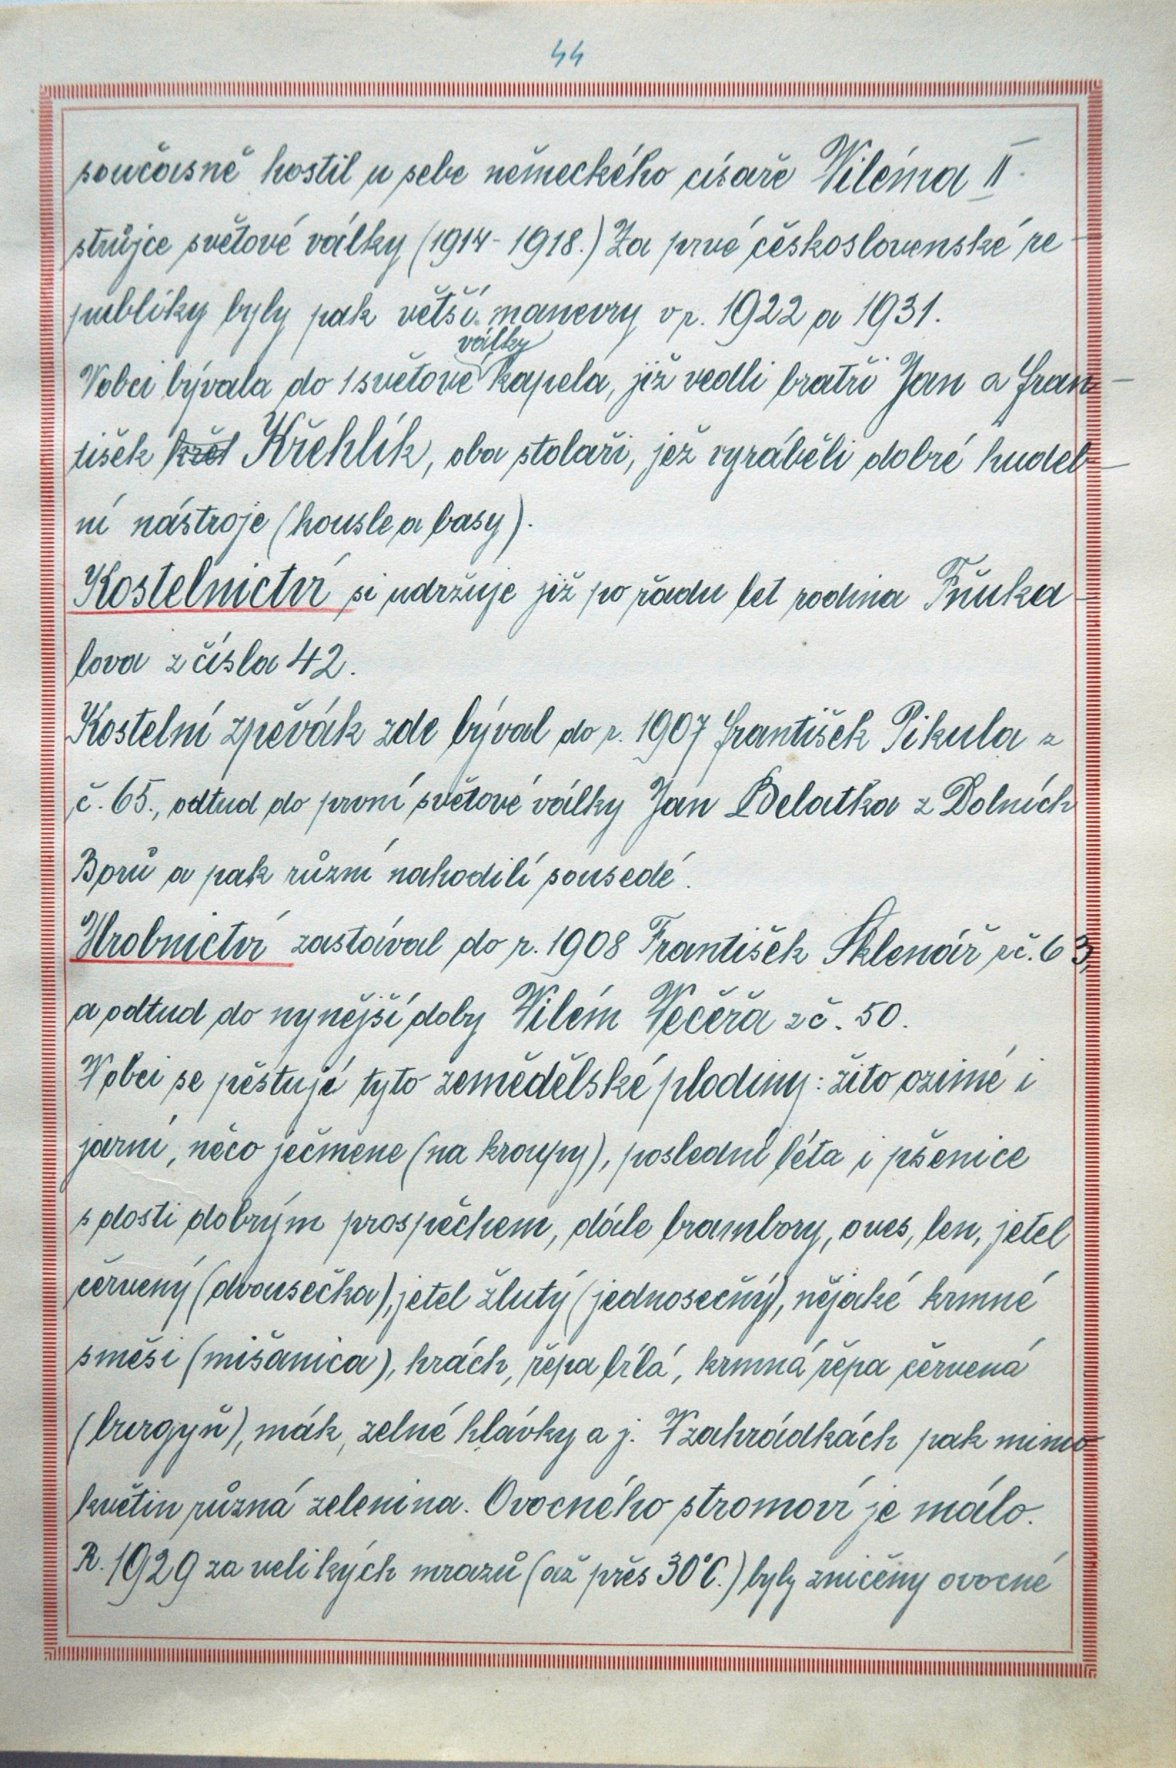 44
současně hostil u sebe německého císaře Viléma II.
strůjce světové války (1914 - 1918.) Za prvé československé re-
publiky byly pak větší manevry v r. 1922 a 1931.
války
V obci bývala do 1 světové kapela, již vedli bratři Jan a Fran-
tišek křel Křehlík, oba stolaři, jež vyráběli dobré hudeb-
ní nástroje (housle a basy).
Kostelnictví si udržuje již po řadu let rodina Fňuka-
lova z čísla 42.
Kostelní zpěvák zde býval do r. 1907 František Pikula z
č. 65., odtud do první světové války Jan Belatka z Dolních
Borů a pak různí nahodilí sousedé.
Hrobnictví zastával do r. 1908 František Sklenář z č. 63,
a odtud do nynější doby Vilém Večeřa z č. 50.
V obci se pěstují tyto zemědělské plodiny: žito ozimé i
jarní, něco ječmene (na kroupy), poslední léta i pšenice
s dosti dobrým prospěchem, dále brambory, oves, len, jetel
červený (dvousečka), jetel žlutý (jednosečný), nějaké krmné
směsi (mišanica), hrách, řepa bílá, krmná řepa červená
(burgyň), mák, zelné hlávky a j. V zahrádkách pak mimo
květin různá zelenina. Ovocného stromoví je málo.
R. 1929 za velikých mrazů (až přes 30°C.) byly zničeny ovocné